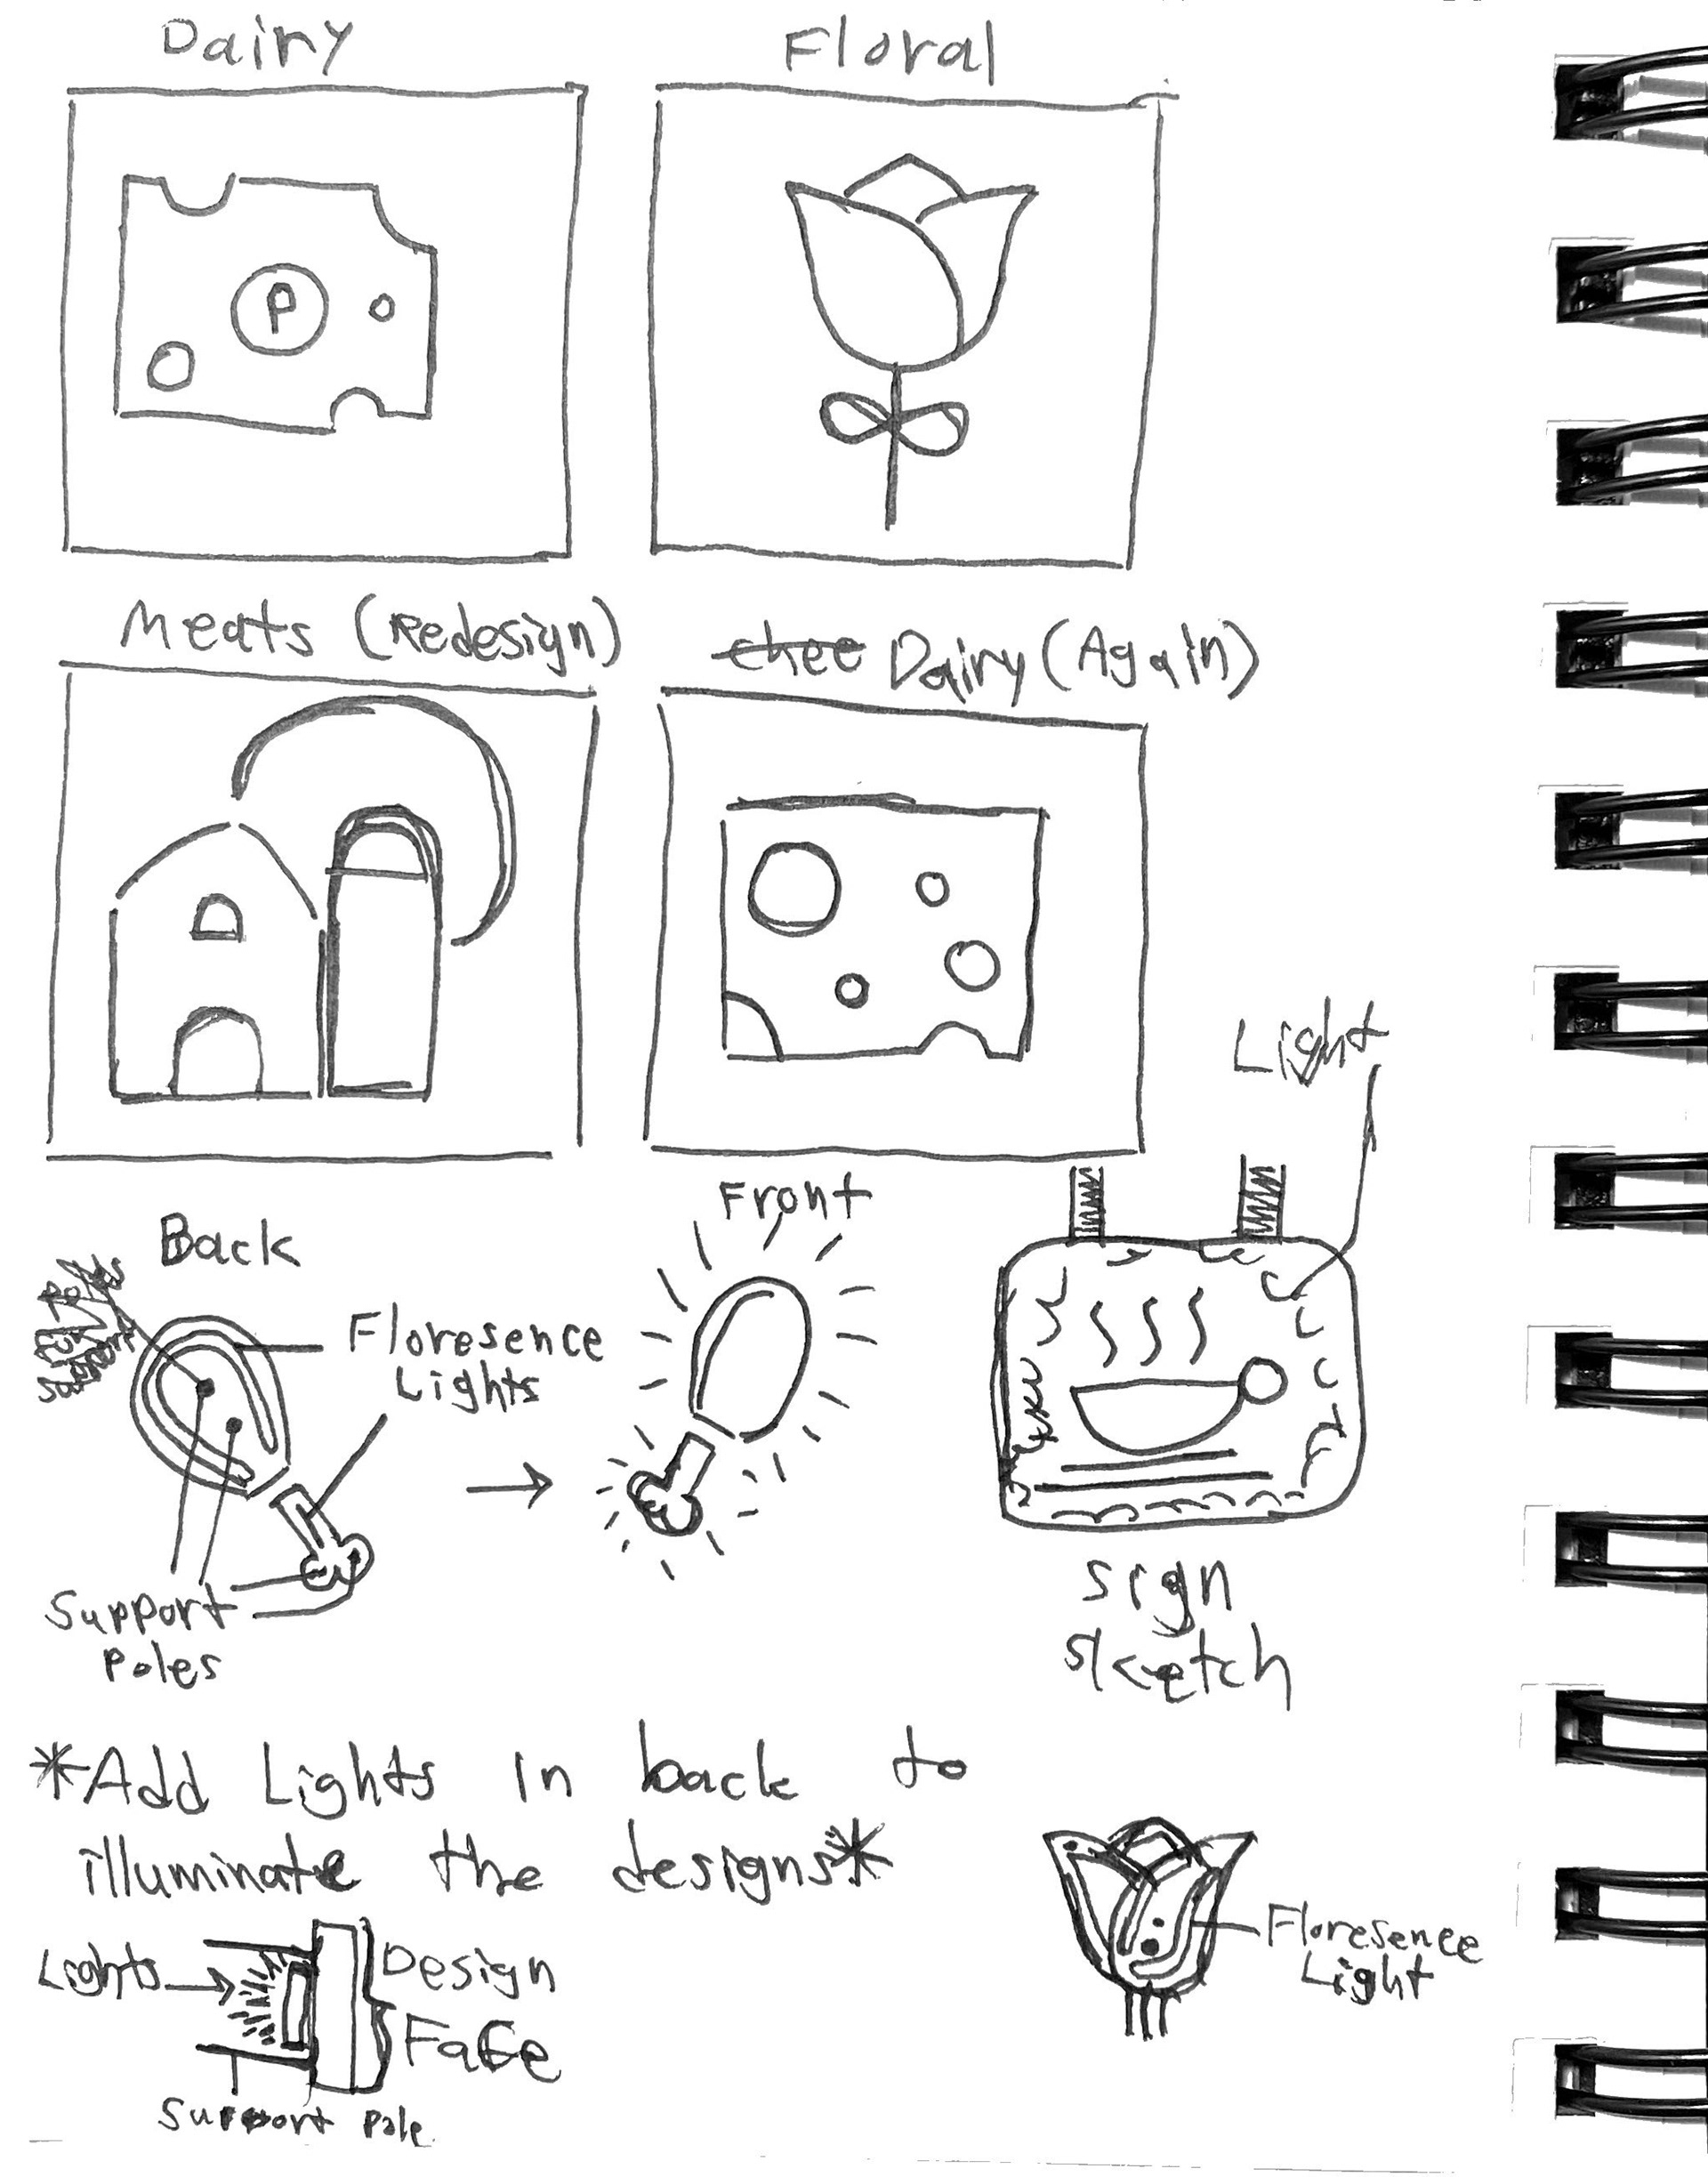 Dairy
Floral
P
Meats (Redesign)
chee Dairy (Again)
Light
Back
Front
Poles
Floresence
Lights
Support
Poles
Sign
Sketch
*Add Lights in back to
illuminate the designs*
Lights
Design
Face
Support Pole
Floresence
Light